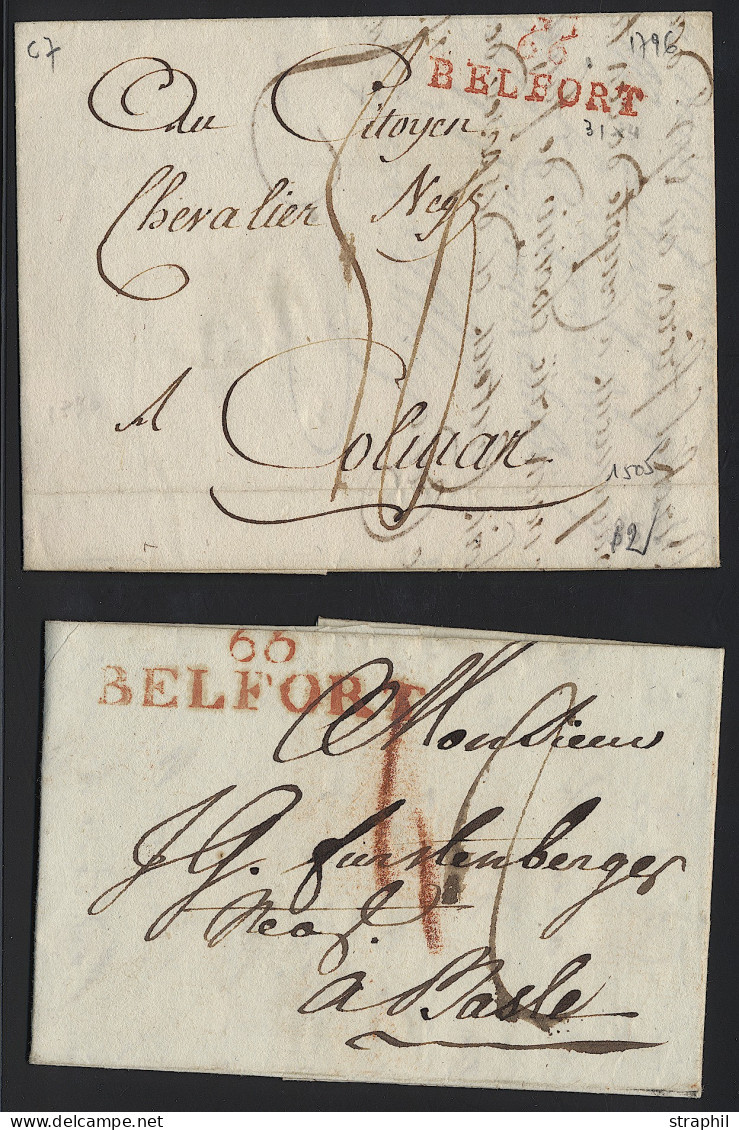 C7
1796
66
BELFORT
Au Citoyen
Chevalier Negt
A Colmar
1505
66
BELFORT
Monsieur
J G. fürstenberger
Negt.
a Basle
www.delcampe.net
straphil